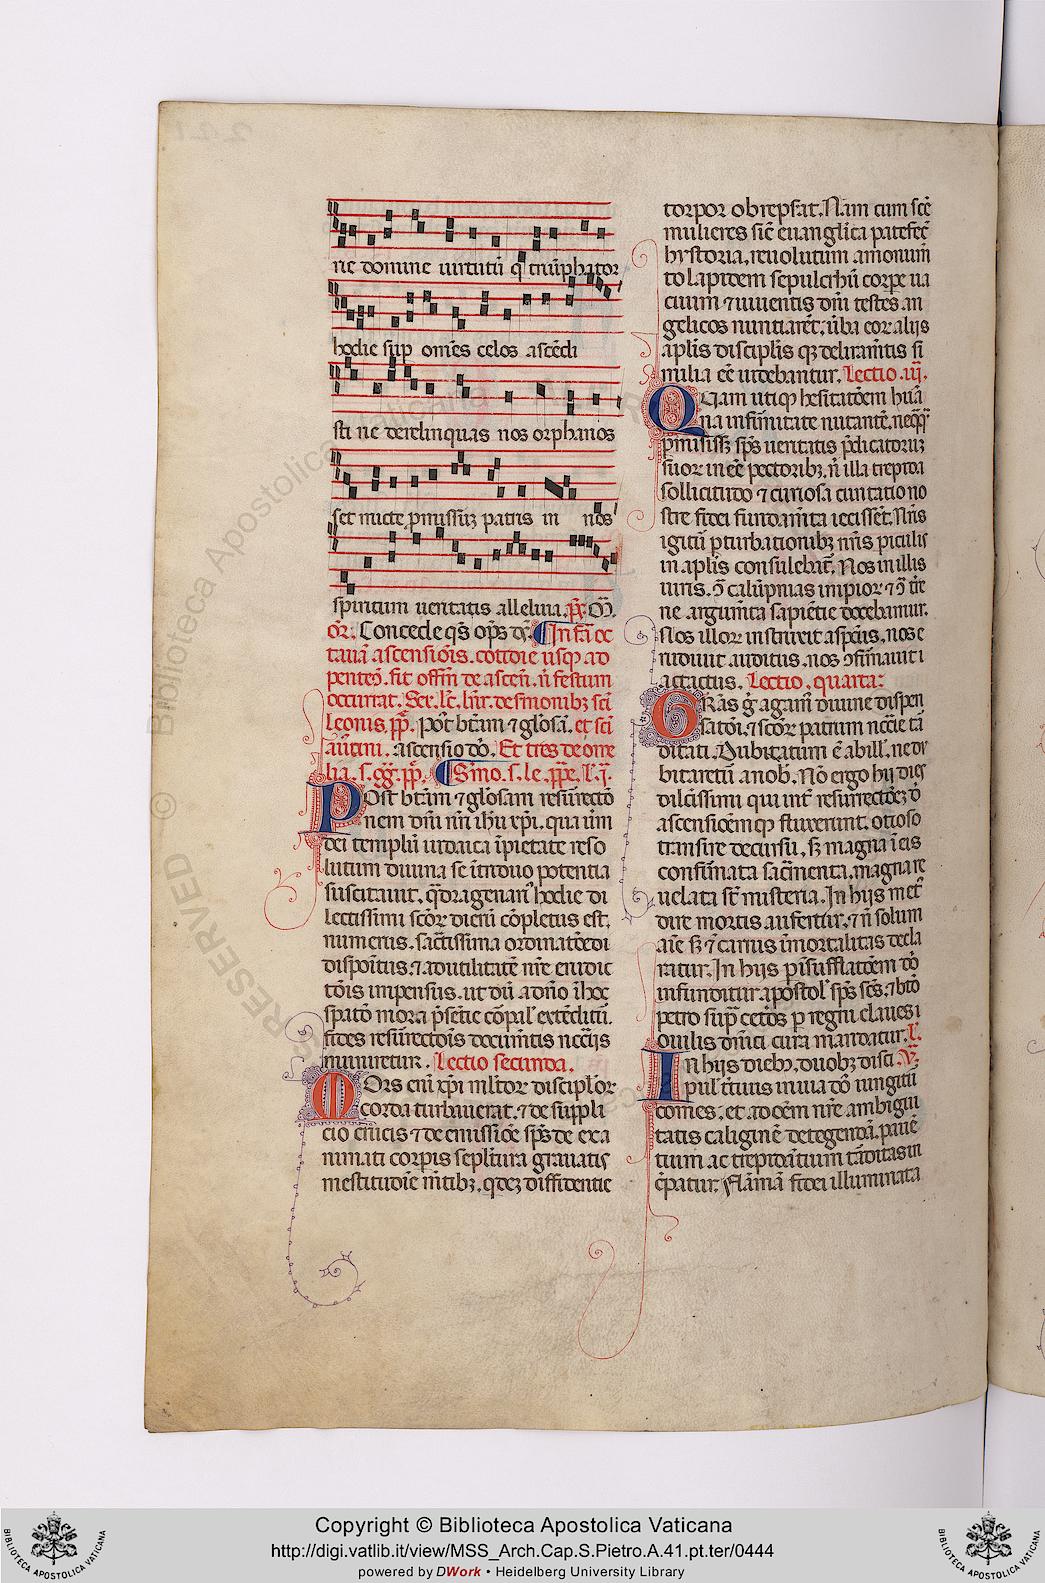 ne domine uirtutū q̄ triūphator
hodie sup̄ omēs celos ascēdi
sti ne derelinquas nos orphanos
set micte p̄missūȝ patris in nos
spiritum ueritatis alleluia. p̄. M̄.
or̄. Concede q̄s op̄s d̄. ¶ Infā oc
tauā ascensiōis. cottidie usqȝ ad
pentec̄. fit offm̄ de ascen̄. n̄ festum
occurrat. Ser. le. hn̄t. de smonibȝ scī
Leonis pp̄. pōt bt̄am ⁊ glosā. et scī
auḡtini. ascensio dō. Et tres de ome
lia. s. gḡ. pp̄. ¶ Smo. s. le. pp̄e. l. j̄.
Post bt̄am ⁊ glosam resurrectō
nem dn̄i nr̄i ih̄u xp̄i. qua uerū
dei templū iudaica īpietate reso
lutum diuina se ītriduo potentia
suscitauit. q̄dragenari᷒ hodie di
lectissimi scōr dierū cōpletus est.
numerus. sac̄tissima ordinatōe di
dispoītus. ⁊ ad utilitatē nr̄e erudic
tōis impensus. ut dū a dn̄o ī hoc
spatō mora p̄sētie cōpal᷒ extēditū.
fides resurrectōis docum̄tis nccīis
muniretur. Lectio secunda.
Mors eni xp̄i ml̄tor discip̄lor
corda turbauerat. ⁊ de suppli
cio crucis ⁊ de emissiōe sp̄s de exa
nimati corpis sepl̄tura grauatis
mestitudīe m̄tibȝ. q̄dez diffidentie
torpor obrepsat. Nam cum scē
mulieres sic̄ euanglica patefec̄
hystoria, reuolutum a monum̄
to lapidem sepulchrū corpe ua
cuum ⁊ uiuentis dn̄i testes an
gelicos nuntiarēt. ūba eor aliis
aplis discip̄lis qȝ deliram̄tis si
milia eē uidebantur. Lectio .iij.
Quam utiqȝ hesitatōem huā
na infirmitate nutantē. neqq᷒
p̄misissȝ sp̄s ueritatis p̄dicatoruȝ
suor ineē pectoribȝ. n̄ illa trepida
sollicitudo ⁊ curiosa cunctatio no
stre fidei fundam̄ta iecisset. Nr̄is
igitū pturbationibȝ nr̄isqȝ piculis
in aplis consulebat̄. Nos in illis
uiris. ꝯ̄ calūpnias impior ⁊ ꝯ̄ tr̄e
ne. argum̄ta sapiētie docebamur.
Nos illor instruxit aspcūs. nos e
rudiuit auditus. nos ꝯfirmauit i
actactus. Lectio. quarta:
Grāas ḡ agam̄ diuine dispen
satōi. ⁊ scōr patrum nccīe tā
ditati. Dubitatum ē ab ill᷒. ne du
bitaretū a nob᷒. Nō ergo hij dies
dilc̄issimi qui int᷒ resurrectōeȝ dō
ascensioēmqȝ fluxerunt. otioso
transire decursu. sȝ magna ī eis
confirmata sac̄menta. magna re
uelata st̄ misteria. In hijs met᷒
dire mortis aufertur. ⁊ n̄ solum
aīe sȝ ⁊ carnis īmortalitas decla
ratur. In hijs p īsufflatōem dō
infunditur apostol᷒ sp̄s scūs. ⁊ btō
petro sup̄ cetōs p̄ regni claues i
ouilis dnīci cura mandatur. R̄.
In hijs diebȝ. duobȝ disci V̄.
pul᷒ tercius in uia dō iungitū
comes. et ad oēm nr̄e ambigui
tatis caliginē detegendā. pauē
tium ac trepidātium tārditas in
crepatur. Flamā fidei illuminata
Copyright © Biblioteca Apostolica Vaticana
http://digi.vatlib.it/view/MSS_Arch.Cap.S.Pietro.A.41.pt.ter/0444
powered by DWork • Heidelberg University Library